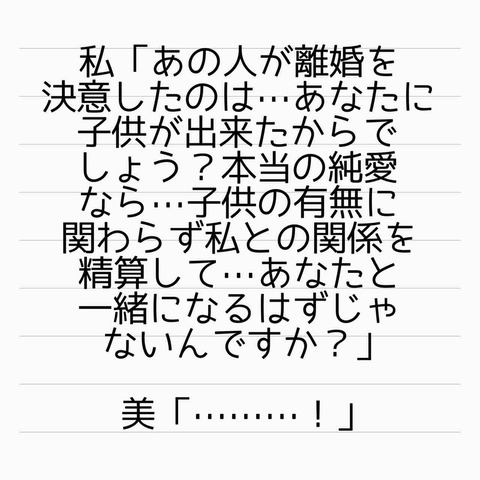 私「あの人が離婚を
決意したのは…あなたに
子供が出来たからで
しょう？本当の純愛
なら…子供の有無に
関わらず私との関係を
精算して…あなたと
一緒になるはずじゃ
ないんですか？」
美「………！」